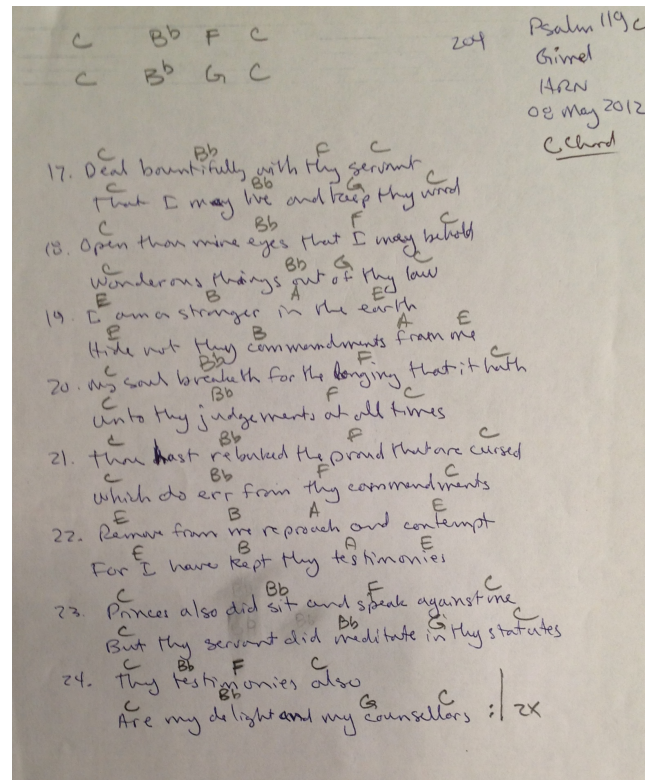 C Bb F C
C Bb G C
204
Psalm 119c
Gimel
HRN
08 May 2012
C Chord
C Bb F C
17. Deal bountifully with thy servant
C Bb G C
that I may live and keep thy word
C Bb F C
18. Open thou mine eyes that I may behold
C Bb G C
Wonderous things out of thy law
E B A E
19. I am a stranger in the earth
E B A E
Hide not thy commandments from me
C Bb F C
20. My soul breaketh for the longing that it hath
C Bb F C
unto thy judgements at all times
C Bb F C
21. thou hast rebuked the proud that are cursed
C Bb F C
which do err from thy commandments
E B A E
22. Remove from me reproach and contempt
E B A E
For I have kept thy testimonies
C Bb F C
23. Princes also did sit and speak against me
C Bb G C
But thy servant did meditate in thy statutes
C Bb F C
24. Thy testimonies also
C Bb G C
Are my delight and my counsellors :| 2x